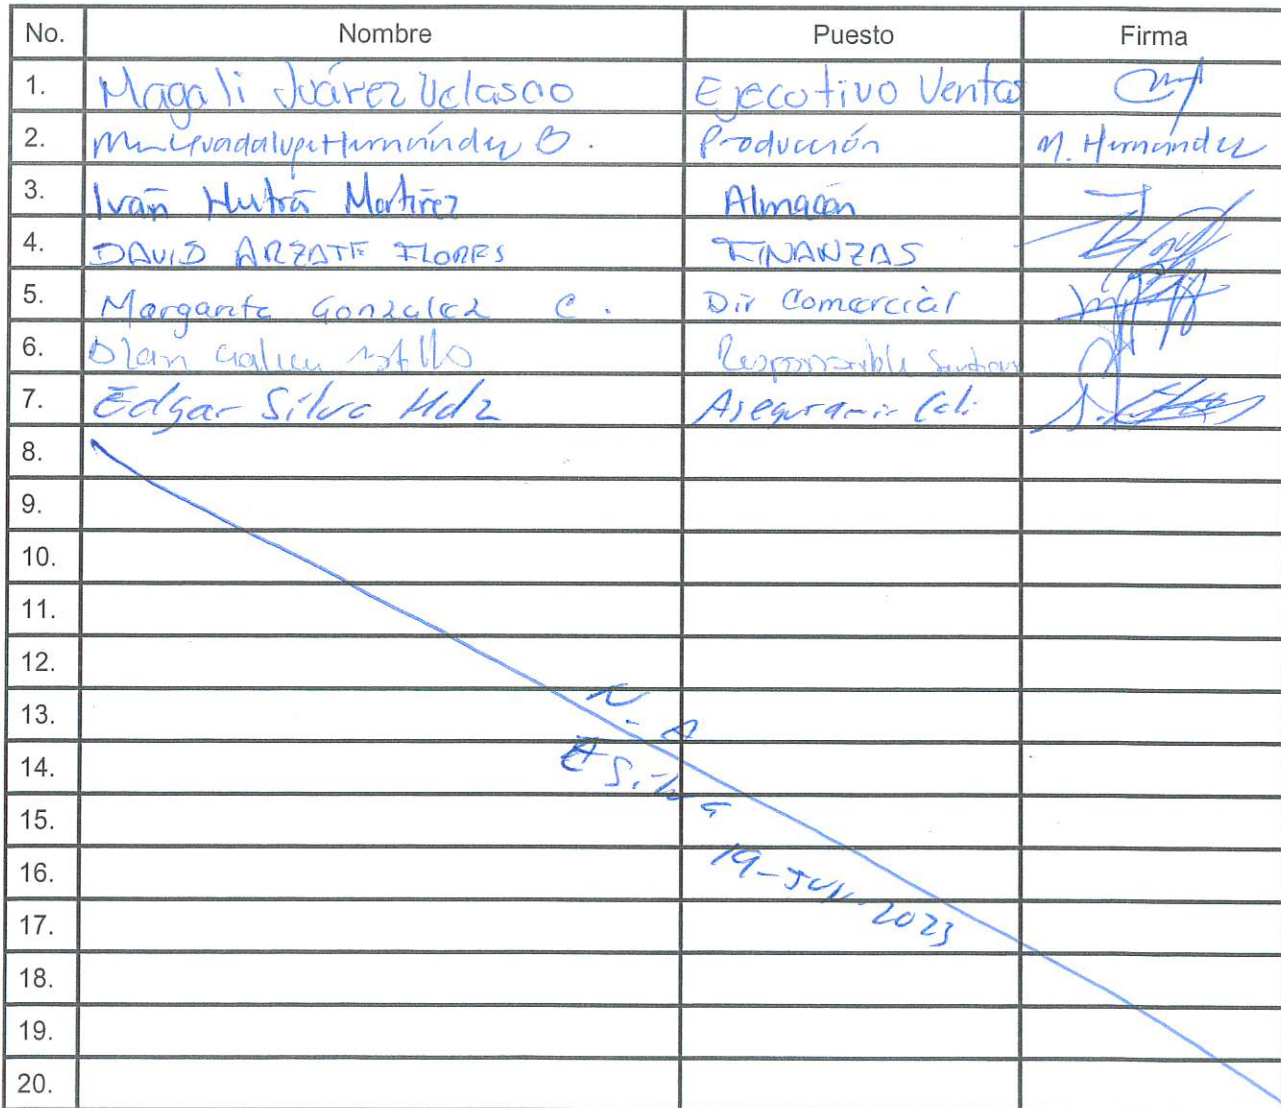 No. Nombre Puesto Firma
1. Magali Juárez Velasco Ejecotivo Ventas
2. Ma Guadalupe Hernández B. Producción M. Hernández
3. Iván Martínez Almacén
4. DAVID ARZATE FLORES FINANZAS
5. Margarita Gonzalez C. Dir Comercial
6. Responsable
7. Edgar Silva Hdz Aseguramie Cali
8.
9.
10.
11.
12.
13. N-A
14. E Silva
15.
16. 19-Jun-2023
17.
18.
19.
20.